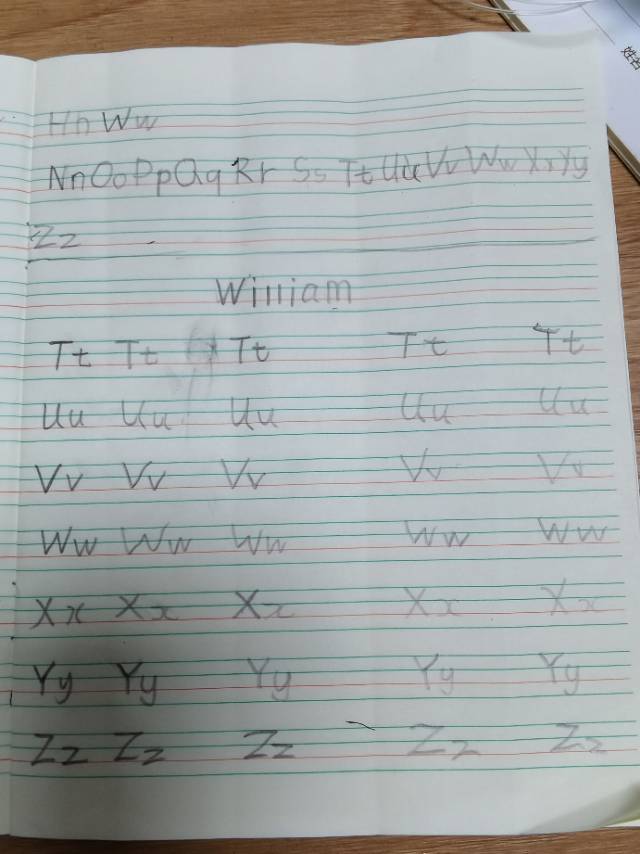 Hh Ww
Nn Oo Pp Qq Rr Ss Tt Uu Vv Ww Xx Yy
Zz
William
Tt Tt Tt Tt Tt
Uu Uu Uu Uu Uu
Vv Vv Vv Vv Vv
Ww Ww Ww Ww Ww
Xx Xx Xx Xx Xx
Yy Yy Yy Yy Yy
Zz Zz Zz Zz Zz
姓名